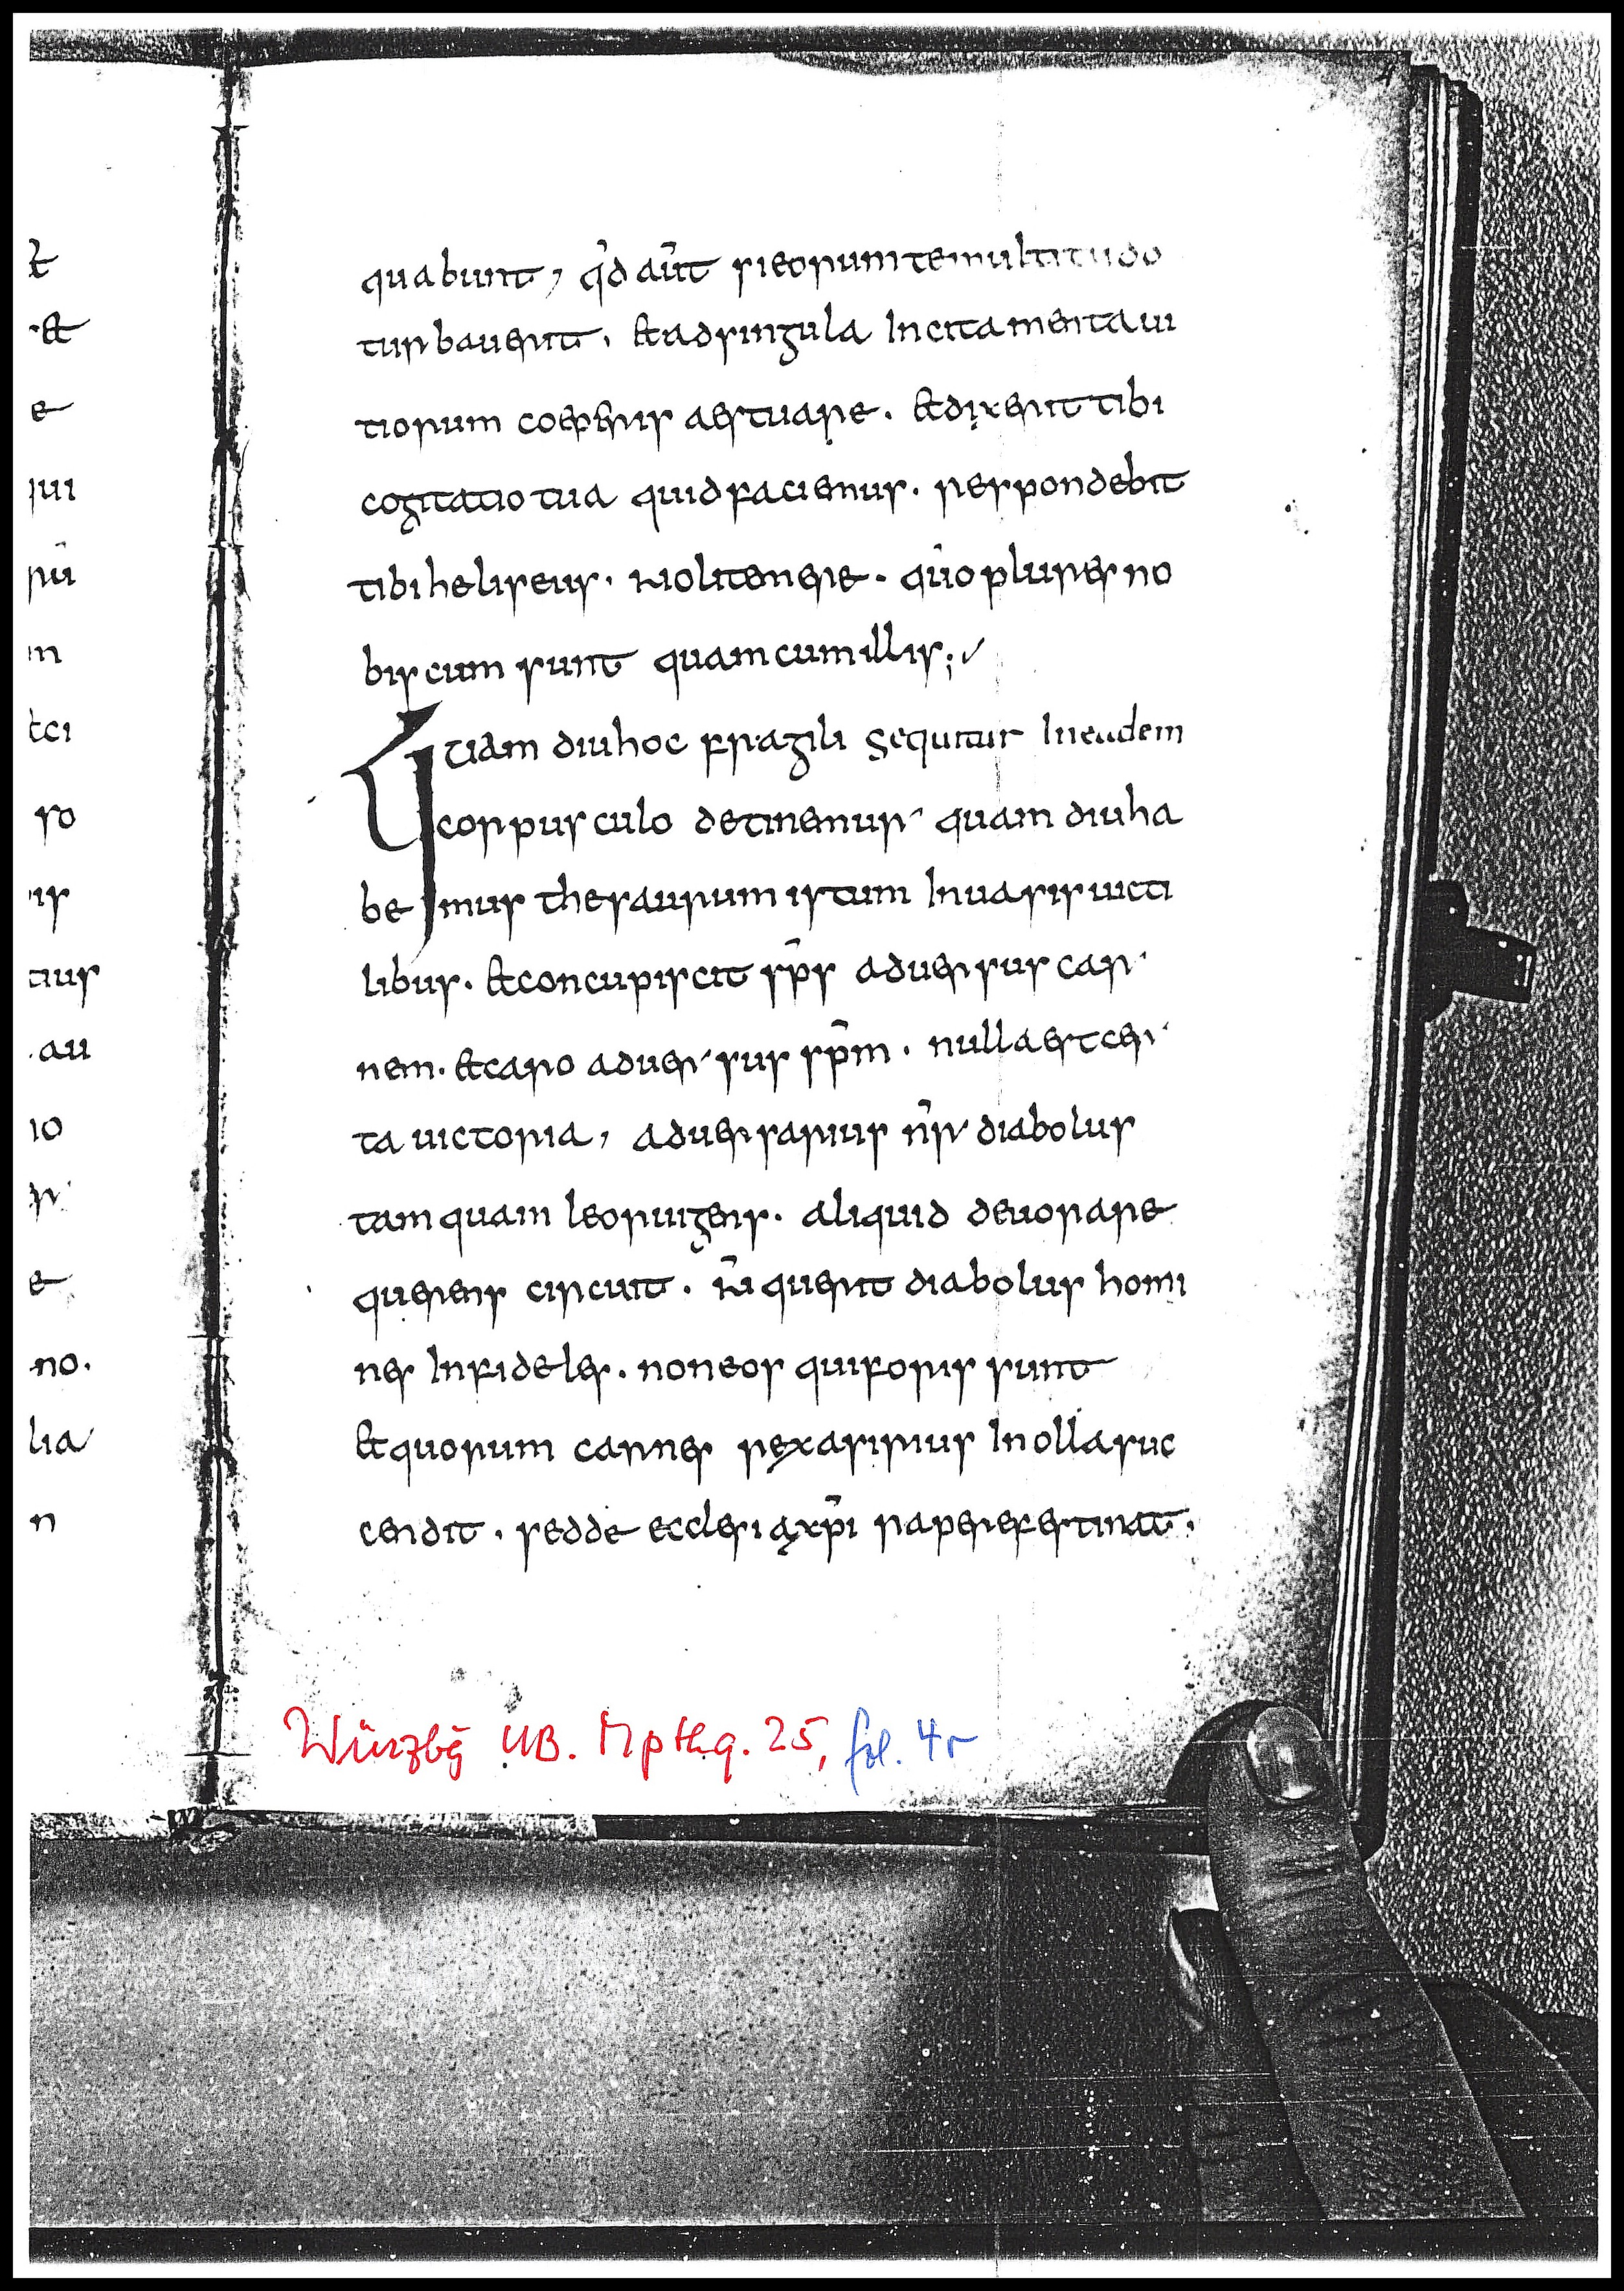 4
quabunt, qd̄ aūt si eorum te multitudo
turbaverit. & ad singula Incitamenta ui
tiorum coeperis aestuare. & dixerit tibi
cogitatio tua quid faciemus. respondebit
tibi heliseus. Noli temere. qūo plures no
biscum sunt quam cum illis;
Quam diu hoc fragili sequitur In eadem
corpusculo detinemur quam diu ha
bemus thesaurum istum In uasis uicti
libus. & concupiscit sp̄s aduersus car
nem. & caro aduersus sp̄m. nulla est cer
ta uictoria, aduersarius n̄r diabolus
tamquam leo ruigens. aliquid deuorare
querens circuit. N̄ querit diabolus homi
nes Infideles. non eos qui foris sunt
& quorum carnes rex asirius In olla suc
cendit. sed de ecclesia xp̄i rapere festinat.
t
&
e
qui
rū
m
tci
so
is
tius
au
io
r
e
no.
lia
n
Würzbg UB. Mpthq. 25, fol. 4r